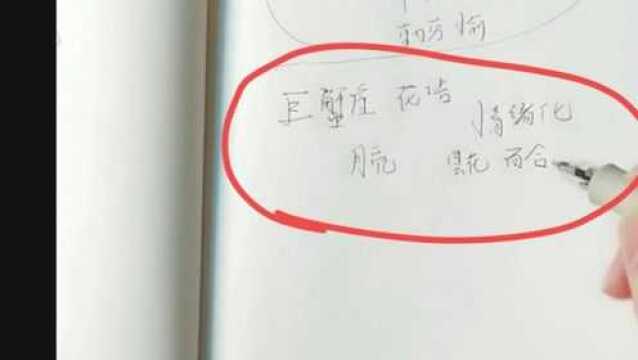 巨蟹座 花语
情绪化
月亮 昙花 百合